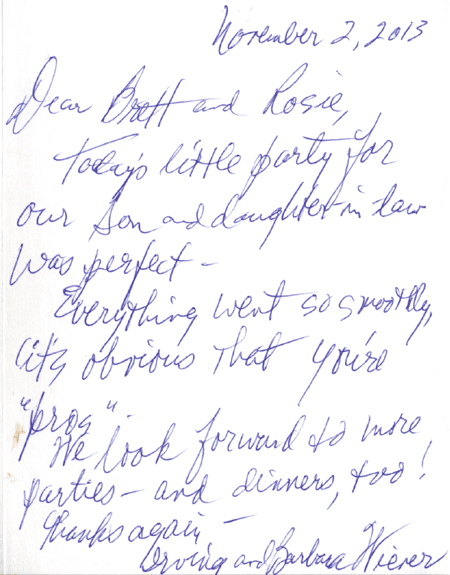 November 2, 2013
Dear Brett and Rosie,
Today's little party for
our son and daughter-in-law
was perfect -
Everything went so smoothly,
it's obvious that you're
"pros".
We look forward to more
parties - and dinners, too!
Thanks again -
Irving and Barbara Wiener